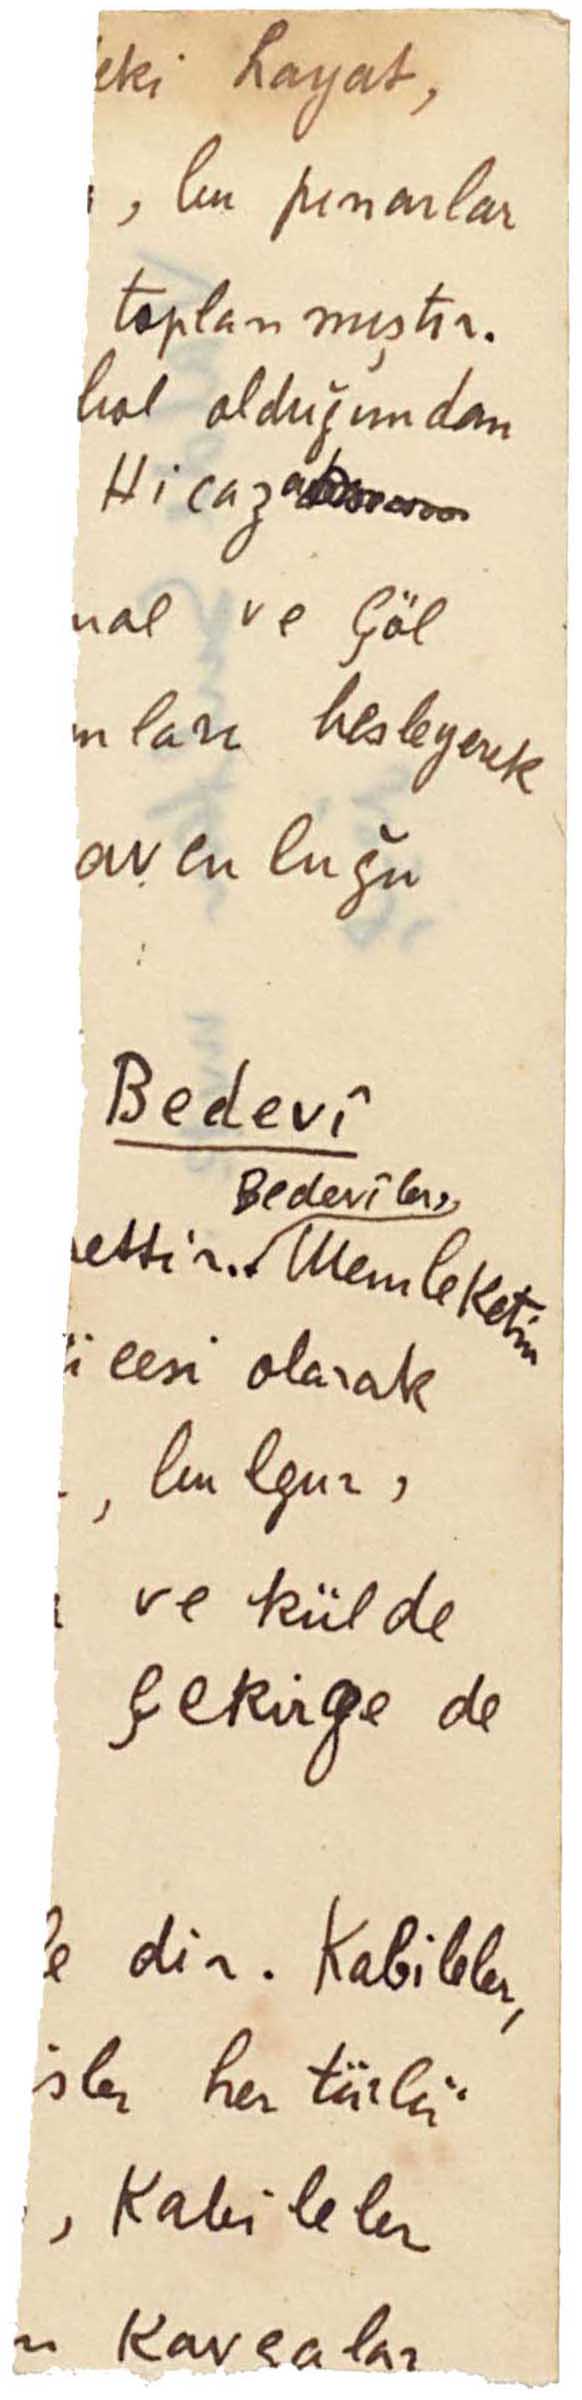 eki hayat,
, bu pınarlar
toplanmıştır.
bol olduğundan
Hicaza
ve Çöl
nları besleyerek
avculuğu
Bedevî
Bedevîler,
ettir. Memleketin
icesi olarak
, bulgur,
ve külde
Çekirge de
e dir. Kabileler,
isler her türlü
, Kabileler
n Kavgalar